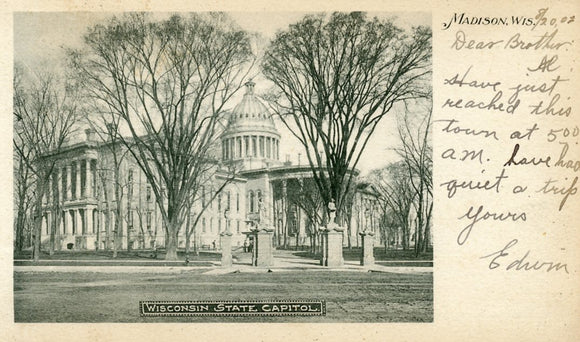 MADISON, WIS. 9/20, 02
Dear Brother.
Al
Have just
reached this
town at 5 00
a.m. have had
quiet a trip
Yours
Edwin
WISCONSIN STATE CAPITOL.